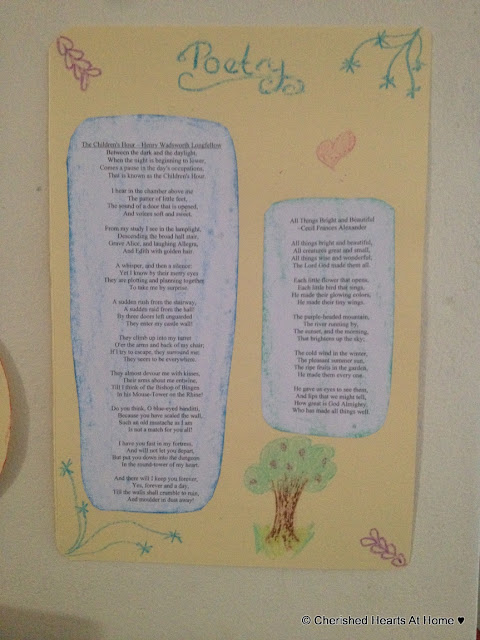 Poetry
The Children's Hour - Henry Wadsworth Longfellow
Between the dark and the daylight,
When the night is beginning to lower,
Comes a pause in the day's occupations,
That is known as the Children's Hour.
I hear in the chamber above me
The patter of little feet,
The sound of a door that is opened,
And voices soft and sweet.
From my study I see in the lamplight,
Descending the broad hall stair,
Grave Alice, and laughing Allegra,
And Edith with golden hair.
A whisper, and then a silence:
Yet I know by their merry eyes
They are plotting and planning together
To take me by surprise.
A sudden rush from the stairway,
A sudden raid from the hall!
By three doors left unguarded
They enter my castle wall!
They climb up into my turret
O'er the arms and back of my chair;
If I try to escape, they surround me;
They seem to be everywhere.
They almost devour me with kisses,
Their arms about me entwine,
Till I think of the Bishop of Bingen
In his Mouse-Tower on the Rhine!
Do you think, O blue-eyed banditti,
Because you have scaled the wall,
Such an old mustache as I am
Is not a match for you all!
I have you fast in my fortress,
And will not let you depart,
But put you down into the dungeon
In the round-tower of my heart.
And there will I keep you forever,
Yes, forever and a day,
Till the walls shall crumble to ruin,
And moulder in dust away!
All Things Bright and Beautiful
-Cecil Frances Alexander
All things bright and beautiful,
All creatures great and small,
All things wise and wonderful,
The Lord God made them all.
Each little flower that opens,
Each little bird that sings,
He made their glowing colors,
He made their tiny wings.
The purple-headed mountain,
The river running by,
The sunset, and the morning,
That brightens up the sky;
The cold wind in the winter,
The pleasant summer sun,
The ripe fruits in the garden,
He made them every one.
He gave us eyes to see them,
And lips that we might tell,
How great is God Almighty,
Who has made all things well.
© Cherished Hearts At Home ♥